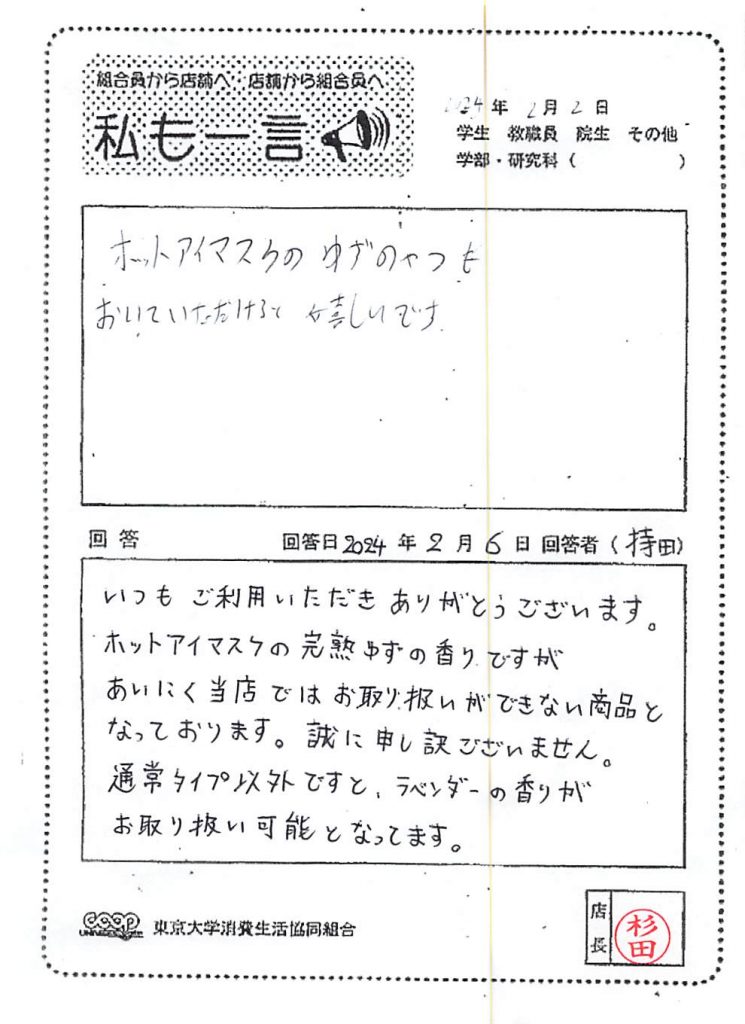 組合員から店舗へ 店舗から組合員へ
私も一言
2024年 2月 2日
学生 教職員 院生 その他
学部・研究科( )
ホットアイマスクの ゆずのやつも
おいていただけると 嬉しいです
回答 回答日2024年2月6日 回答者(持田)
いつもご利用いただきありがとうございます。
ホットアイマスクの完熟ゆずの香りですが
あいにく当店ではお取り扱いができない商品と
なっております。誠に申し訳ございません。
通常タイプ以外ですと、ラベンダーの香りが
お取り扱い可能となってます。
coop 東京大学消費生活協同組合
店長
杉田